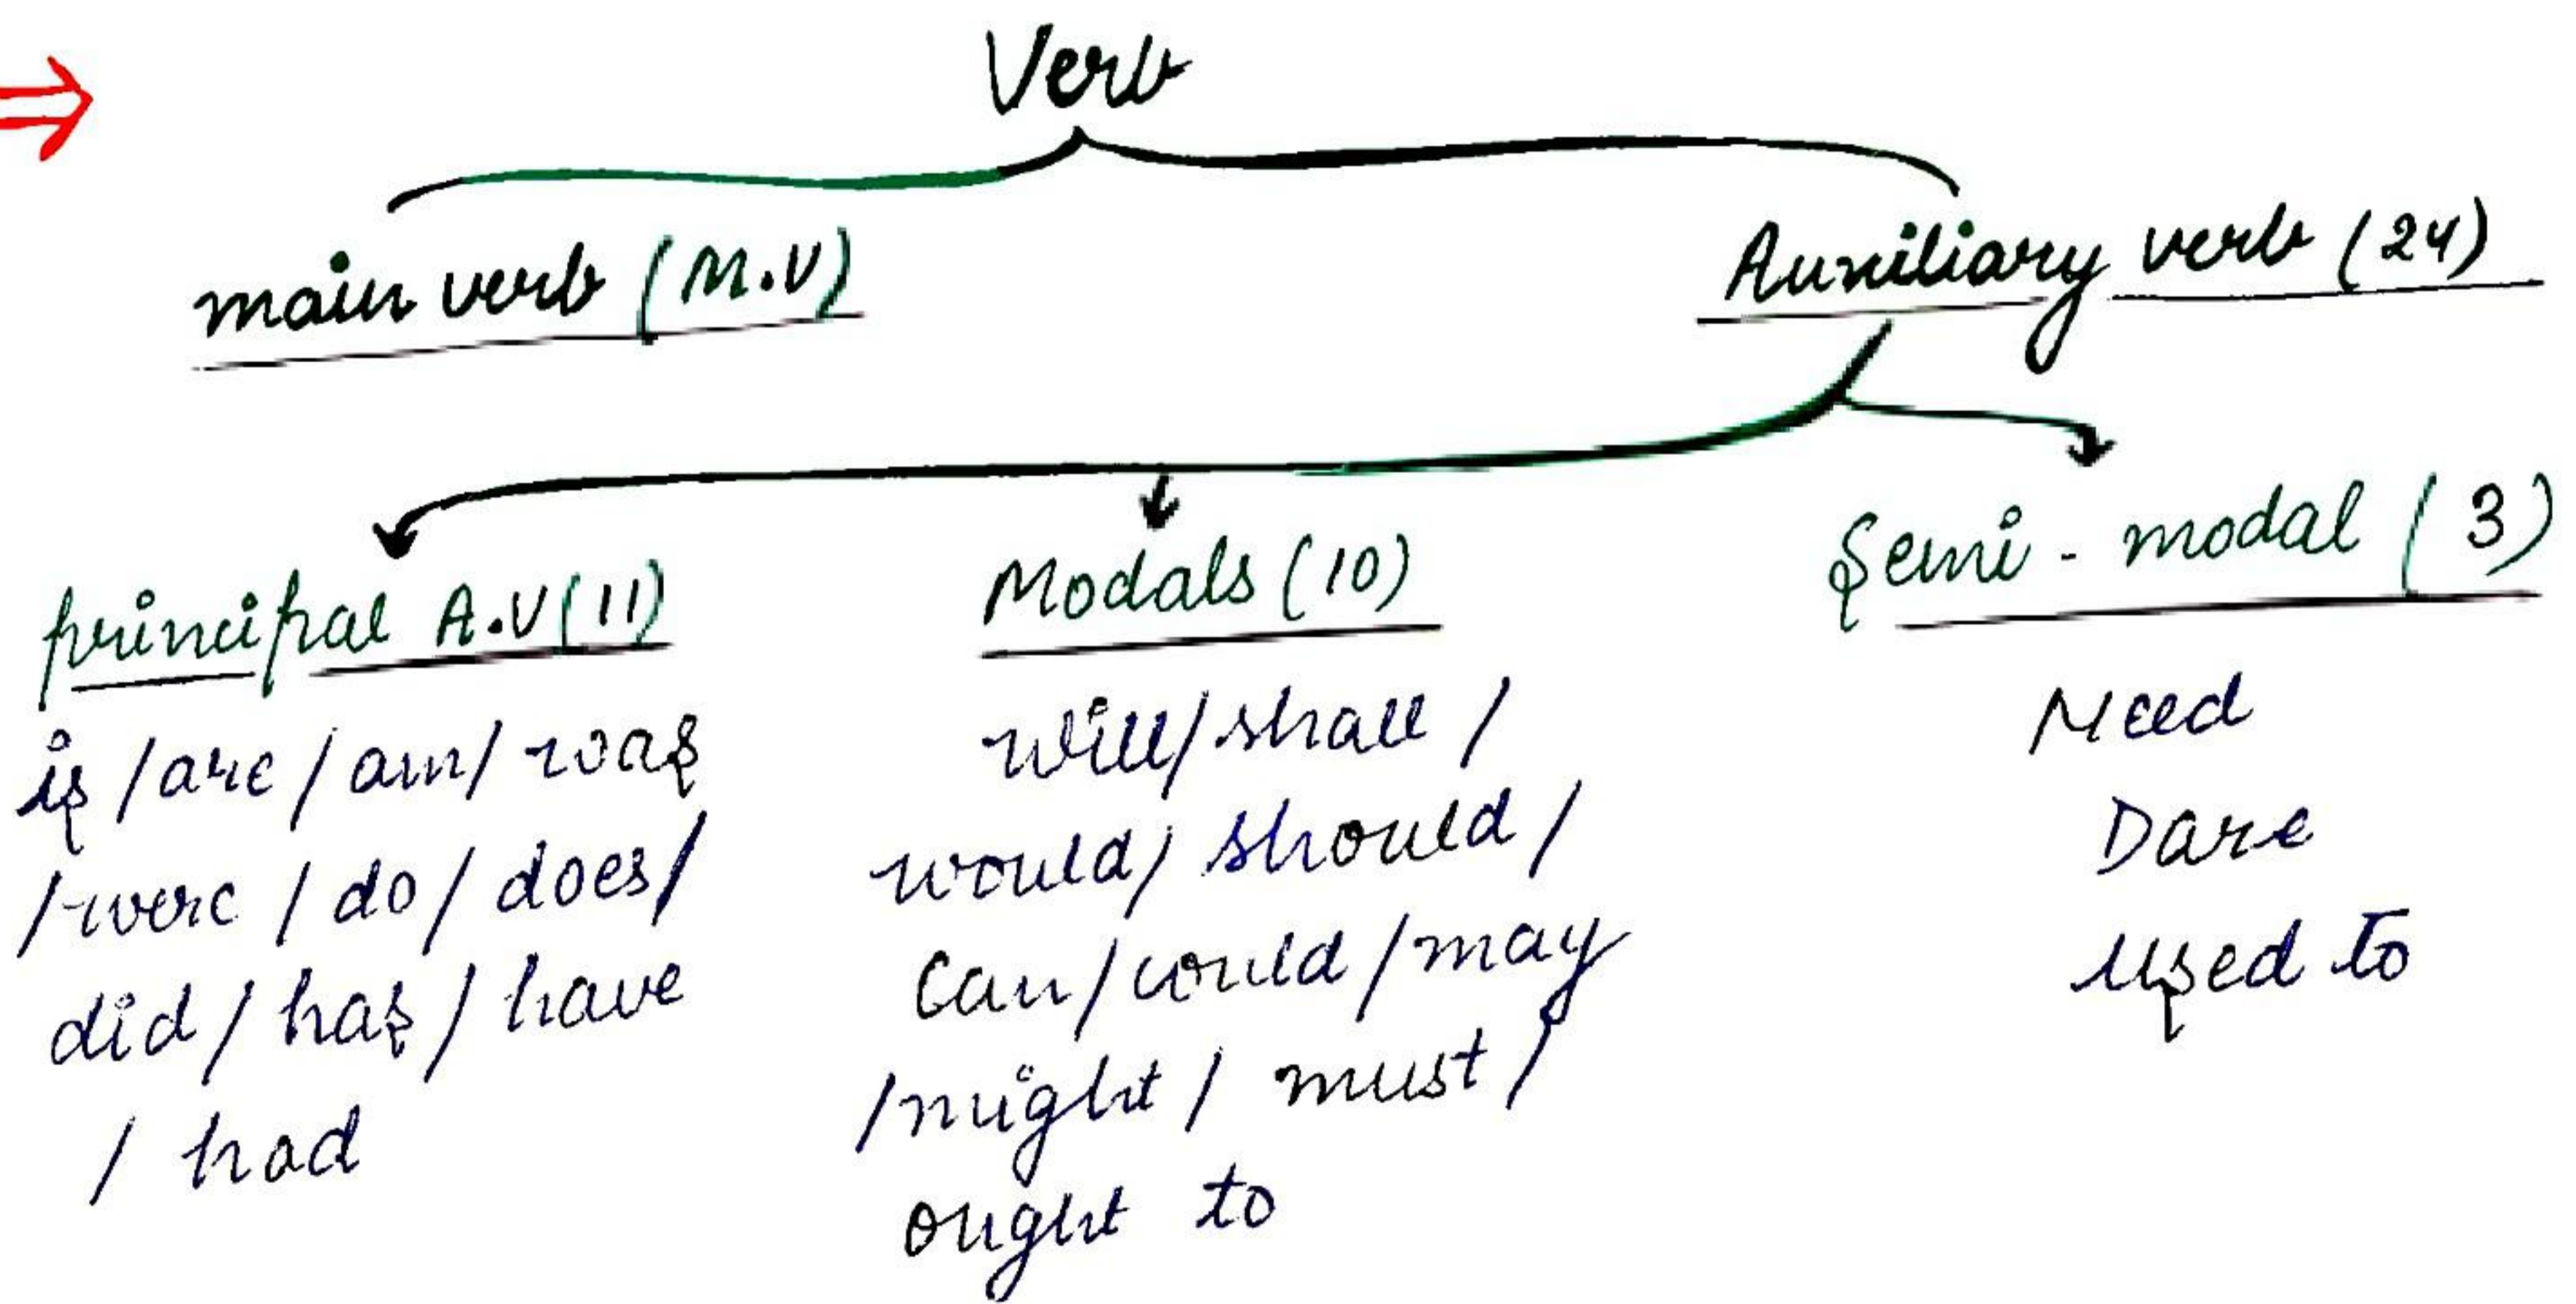 ⇒ Verb
main verb (M.V)
Auxiliary verb (24)
principal A.V (11)
is / are / am / was
/ were / do / does /
did / has / have
/ had
Modals (10)
will / shall /
would / should /
Can / could / may
/ might / must /
ought to
Semi - modal (3)
Need
Dare
used to